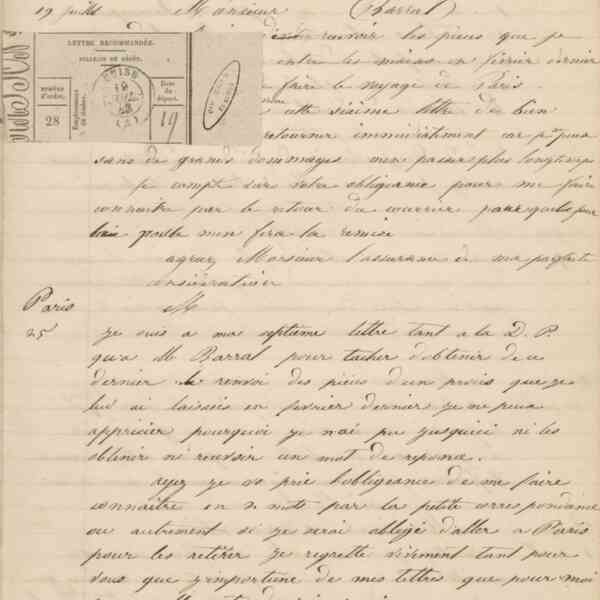 19 Juillet Monsieur (Barral)
recevoir les pieces que je
entre les mains en fevrier dernier
faire le voyage de Paris.
LETTRE RECOMMANDÉE.
BULLETIN DE DÉPÔT.
NUMÉRO d'ordre.
28
Date du départ.
19
cette sixième lettre de bien
retourner immediatement car je ne puis
sans de grands dommages m'en passer plus longtemps
Je compte sur votre obligeance pour me faire
connaitre par le retour du courrier par quelle
poste m'en fera la remise
agreez Monsieur l'assurance de ma parfaite
considération
Paris
25
M
Je suis a ma septième lettre tant a la D. P.
qu'a M Barral pour tacher d'obtenir de ce
dernier le renvoi des pièces d'un procès que je
lui ai laissés en fevrier dernier Je ne peux
apprécier pourquoi je n'ai pu jusquici ni les
obtenir ni recevoir un mot de reponse.
ayez je vs prie l'obligeance de me faire
connaitre en 2 mots par la petite correspondance
ou autrement si je serai obligé d'aller a Paris
pour les retirer Je regrette vivement tant pour
vous que j'importune de mes lettres que pour moi